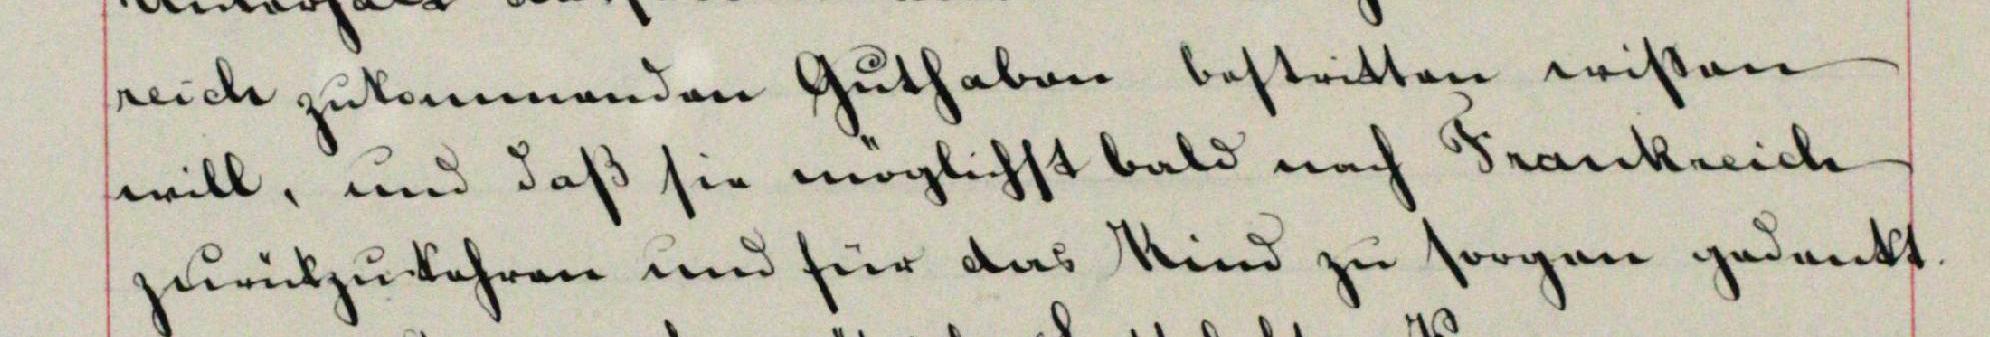 reich zukommenden Guthaben bestritten wißen
will, und daß sie möglichst bald nach Frankreich
zurükzukehren und für das Kind zu sorgen gedenkt.